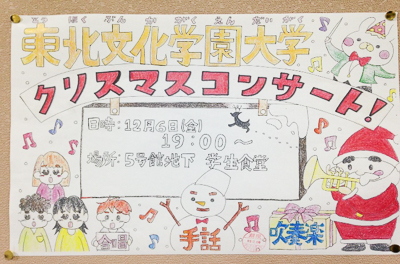 とうほくぶんかがくえんだいがく
東北文化学園大学
クリスマスコンサート!
日時:12月6日(金)
19:00〜
場所:5号館地下 学生食堂
合唱
手話
吹奏楽